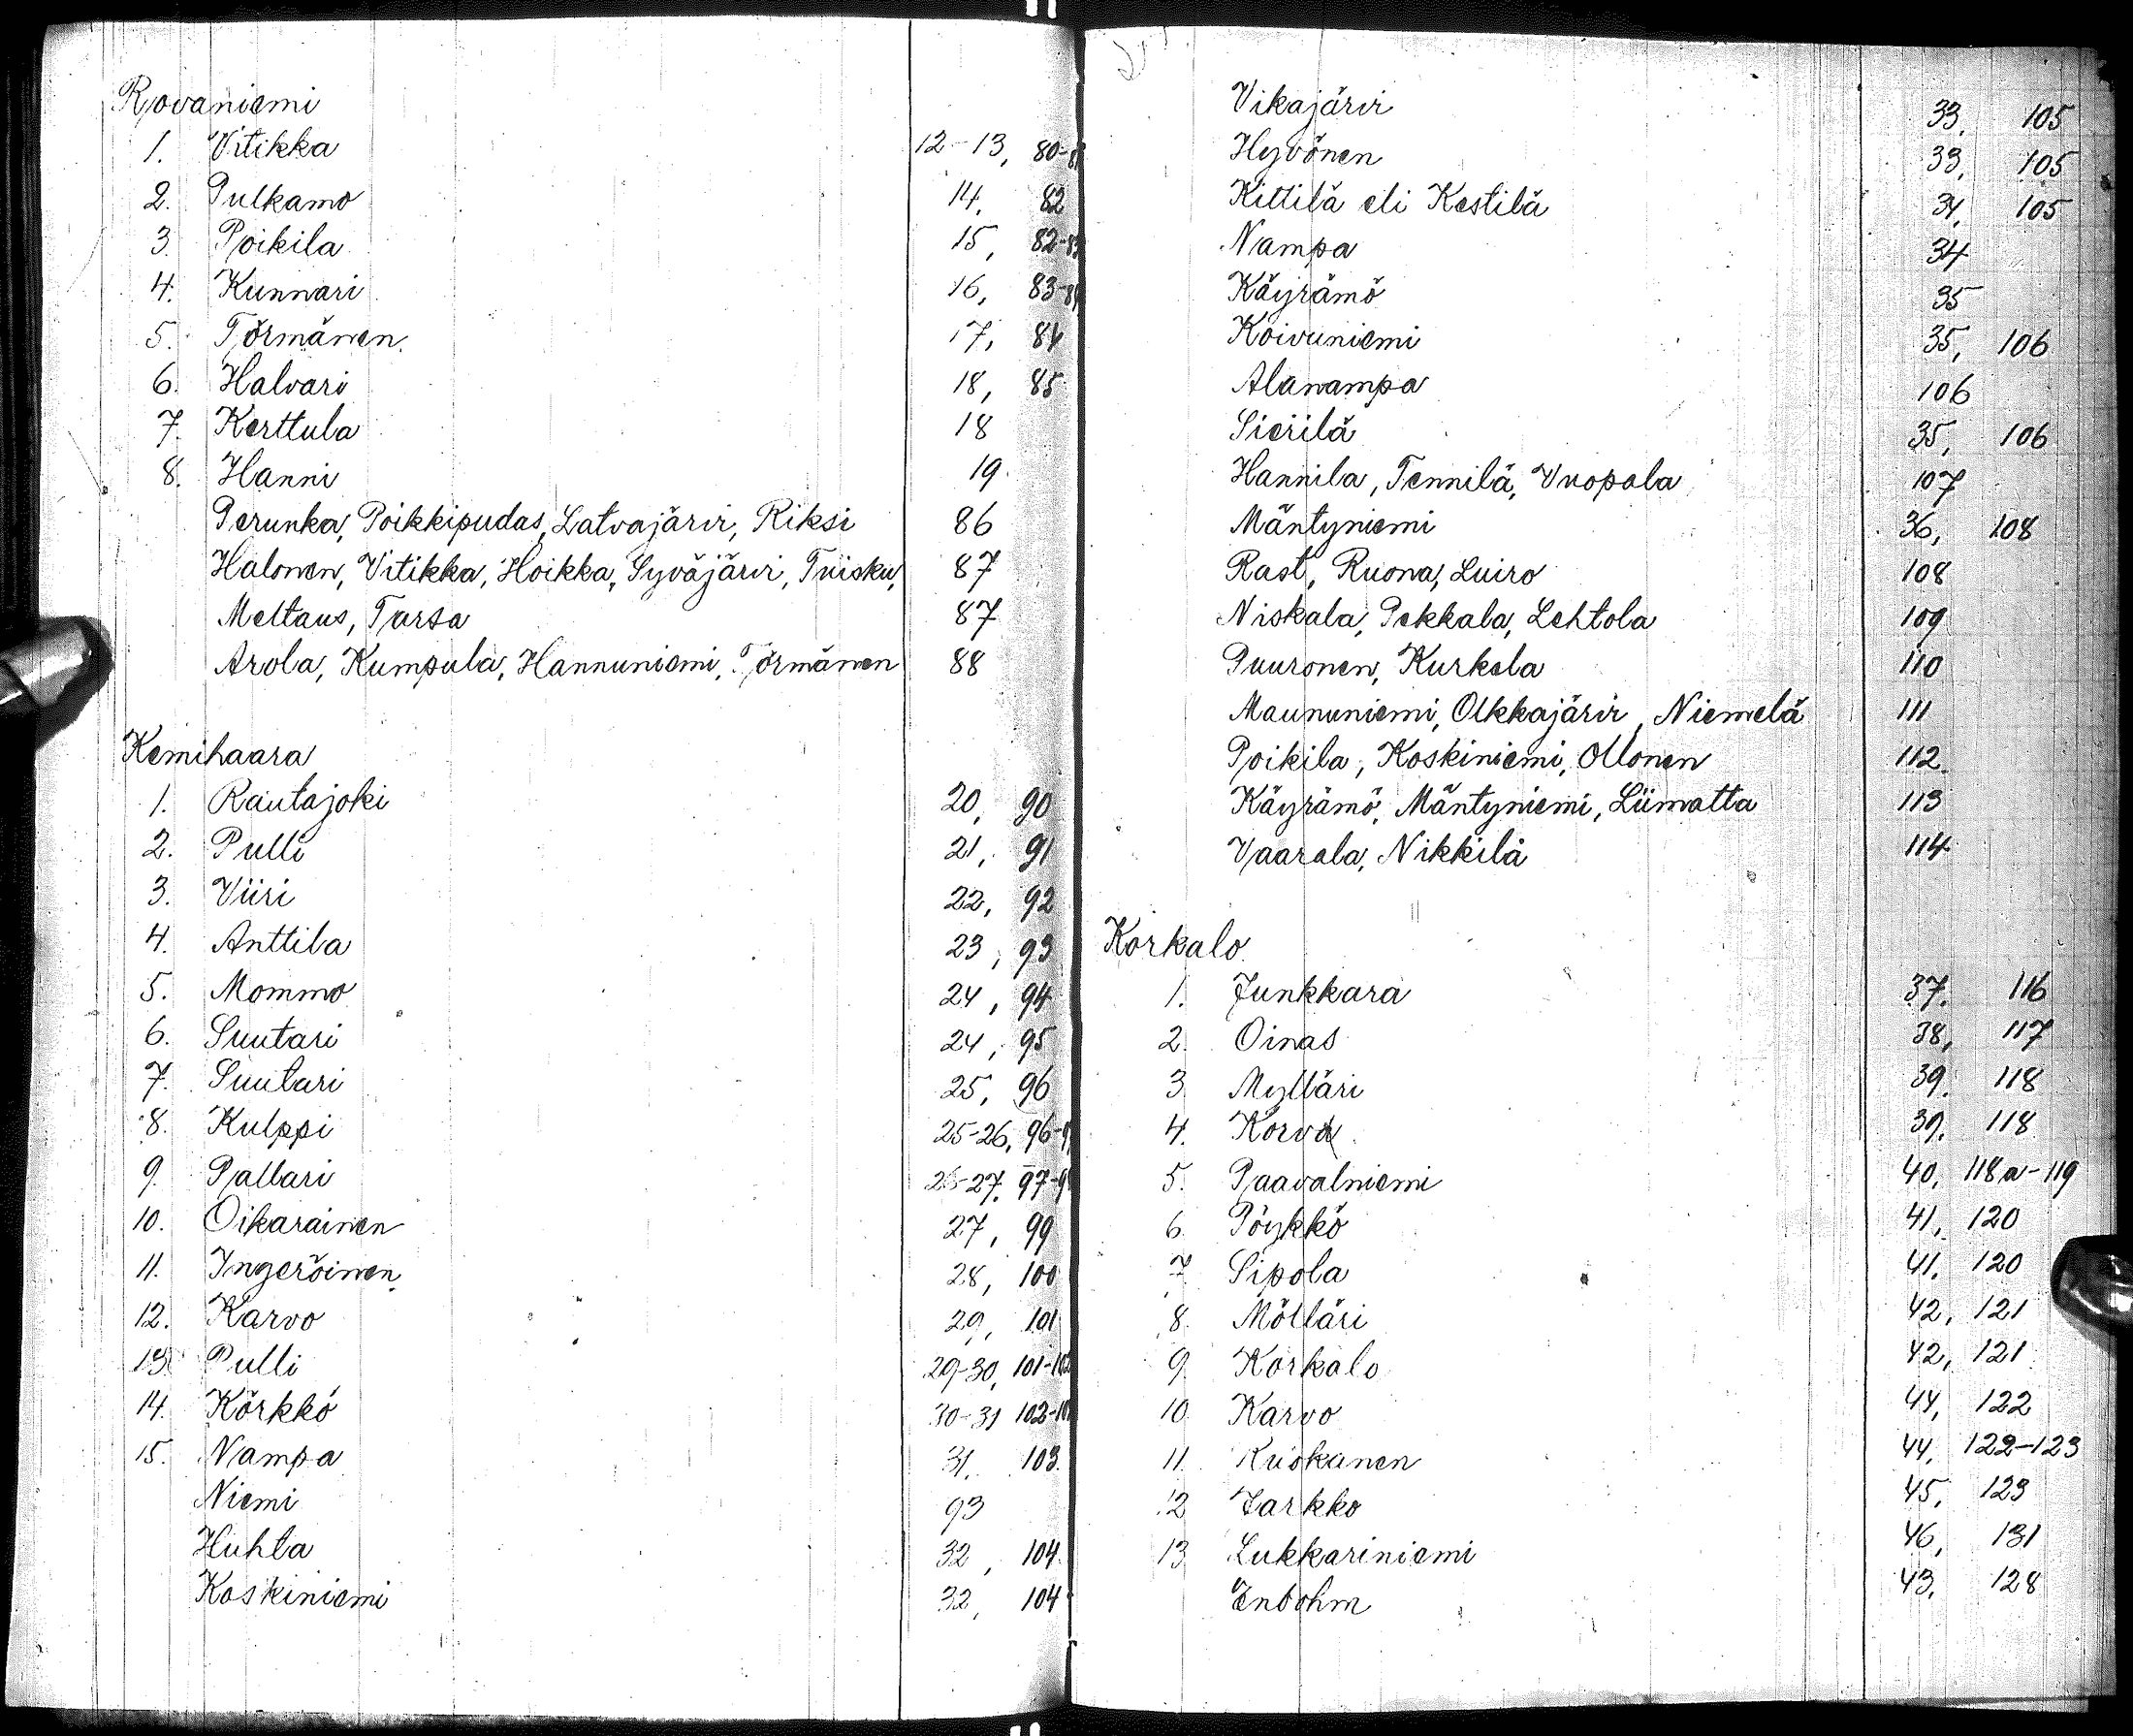 Rovaniemi
1. Vitikka 12-13, 80-
2. Pulkamo 14, 82
3. Poikila 15, 82-83
4. Kunnari 16, 83-84
5. Törmänen 17, 84
6. Halvari 18, 85
7. Kerttula 18
8. Hanni 19
Perunka, Poikkipudas, Latvajärvi, Riksi 86
Halonen, Vitikka, Hoikka, Syväjärvi, Tuisku, 87
Meltaus, Tarsa 87
Arola, Kumpula, Hannuniemi, Törmänen 88
Kemihaara
1. Rautajoki 20, 90
2. Pulli 21, 91
3. Viiri 22, 92
4. Anttila 23, 93
5. Mommo 24, 94
6. Suutari 24, 95
7. Suutari 25, 96
8. Kulppi 25-26, 96-
9. Pallari 26-27, 97-
10. Oikarainen 27, 99
11. Ingeröinen 28, 100
12. Karvo 29, 101
13. Pulli 29-30, 101-102
14. Körkkö 30-31 102-
15. Nampa 31, 103
Niemi 93
Huhta 32, 104
Koskiniemi 32, 104
Vikajärvi 33, 105
Hyvönen 33, 105
Kittilä eli Kestilä 34, 105
Nampa 34
Käyrämö 35
Koivuniemi 35, 106
Alanampa 106
Sierilä 35, 106
Hannila, Tennilä, Vuopala 107
Mäntyniemi 36, 108
Rast, Ruona, Luiro 108
Niskala, Pekkala, Lehtola 109
Puuronen, Kurkela 110
Maununiemi, Olkkajärvi, Niemelä 111
Poikila, Koskiniemi, Ollonen 112
Käyrämö, Mäntyniemi, Liimatta 113
Vaarala, Nikkilä 114
Korkalo
1. Junkkara 37, 116
2. Oinas 38, 117
3. Mylläri 39, 118
4. Korva 39, 118
5. Paavalniemi 40, 118a-119
6. Pöykkö 41, 120
7. Sipola 41, 120
8. Mölläri 42, 121
9. Korkalo 42, 121
10. Karvo 44, 122
11. Ruokanen 44, 122-123
12 Jarkko 45, 123
13 Lukkariniemi 46, 131
Enbohm 43, 128